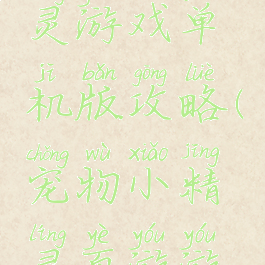 灵游戏单
jī bǎn gōng lüè
机版攻略(
chǒng wù xiǎo jīng
宠物小精
líng yè yóu yóu
灵页游游